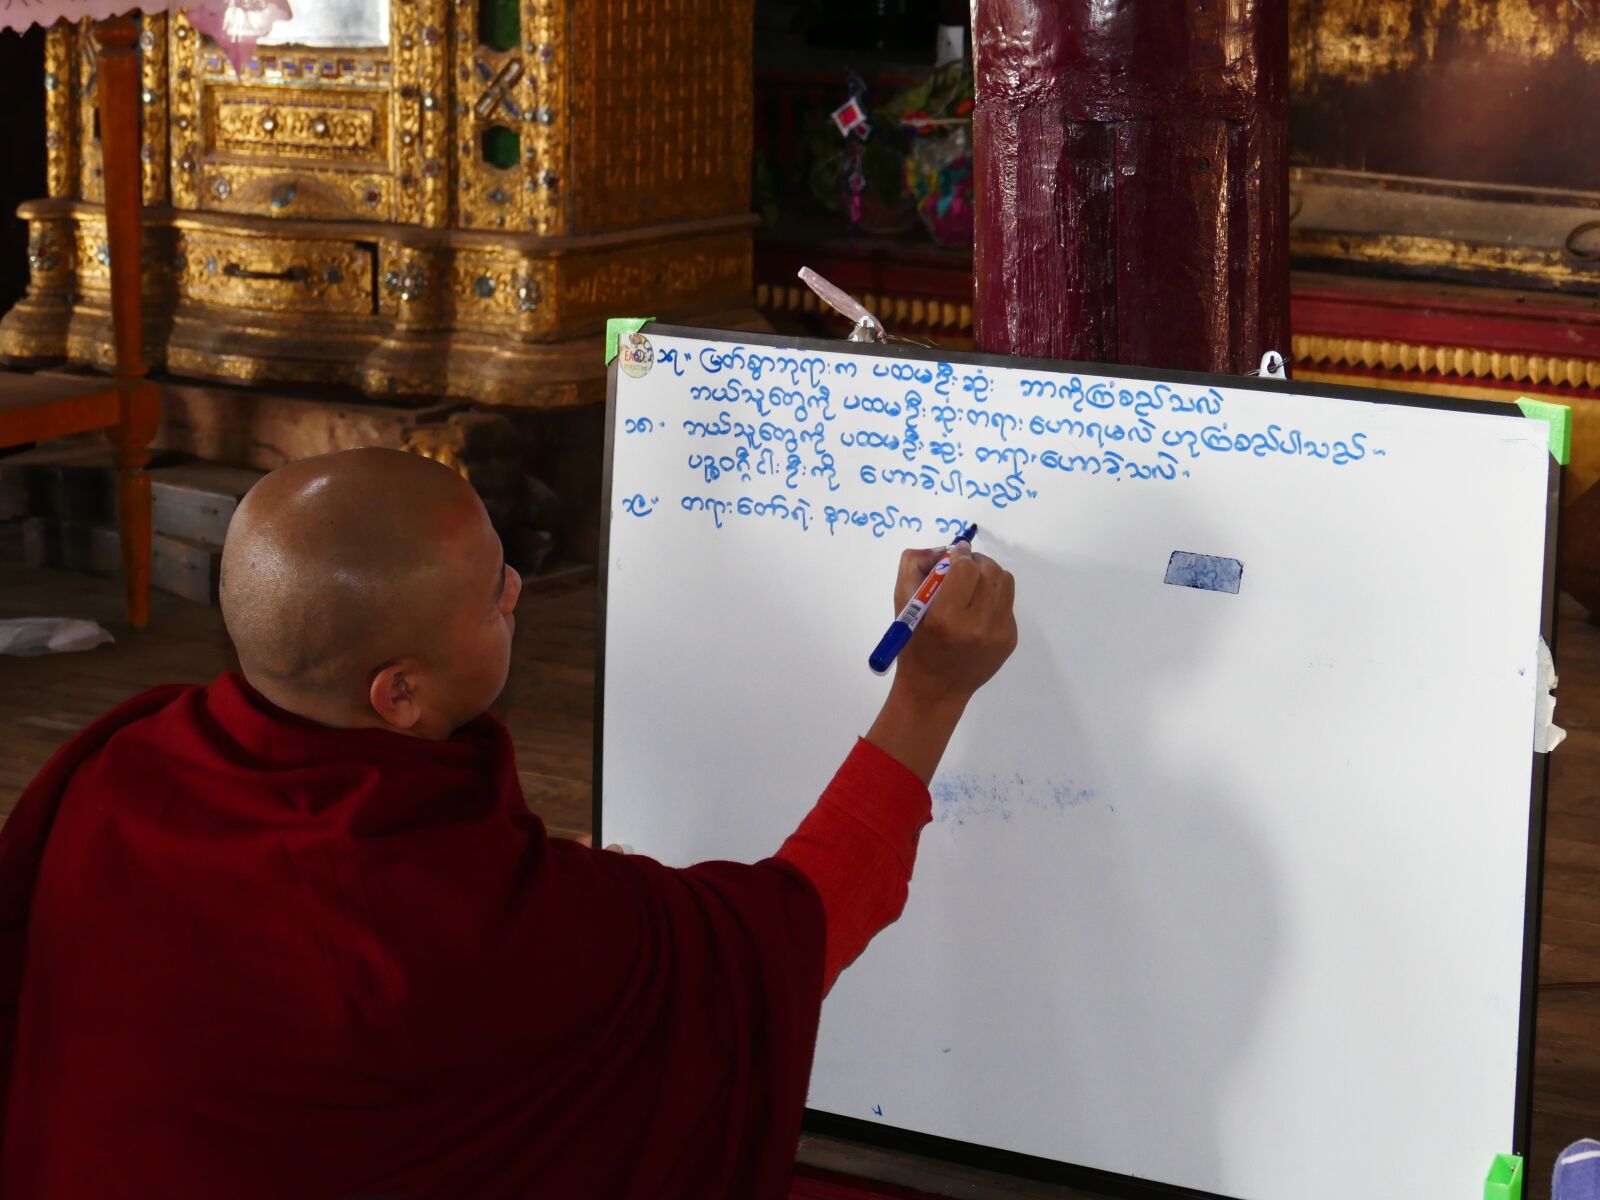 ၁၇။ မြတ်စွာဘုရားက ပထမဦးဆုံး ဘာကိုကြံစည်သလဲ
ဘယ်သူတွေကို ပထမဦးဆုံးတရားဟောရမလဲ ဟုကြံစည်ပါသည်။
၁၈။ ဘယ်သူတွေကို ပထမဦးဆုံး တရားဟောခဲ့သလဲ။
ပဉ္စဝဂ္ဂီငါးဦးကို ဟောခဲ့ပါသည်။
၁၉။ တရားတော်ရဲ့ နာမည်က ဘ
EAGLE